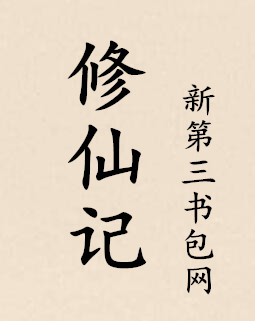 修仙记
新第三书包网